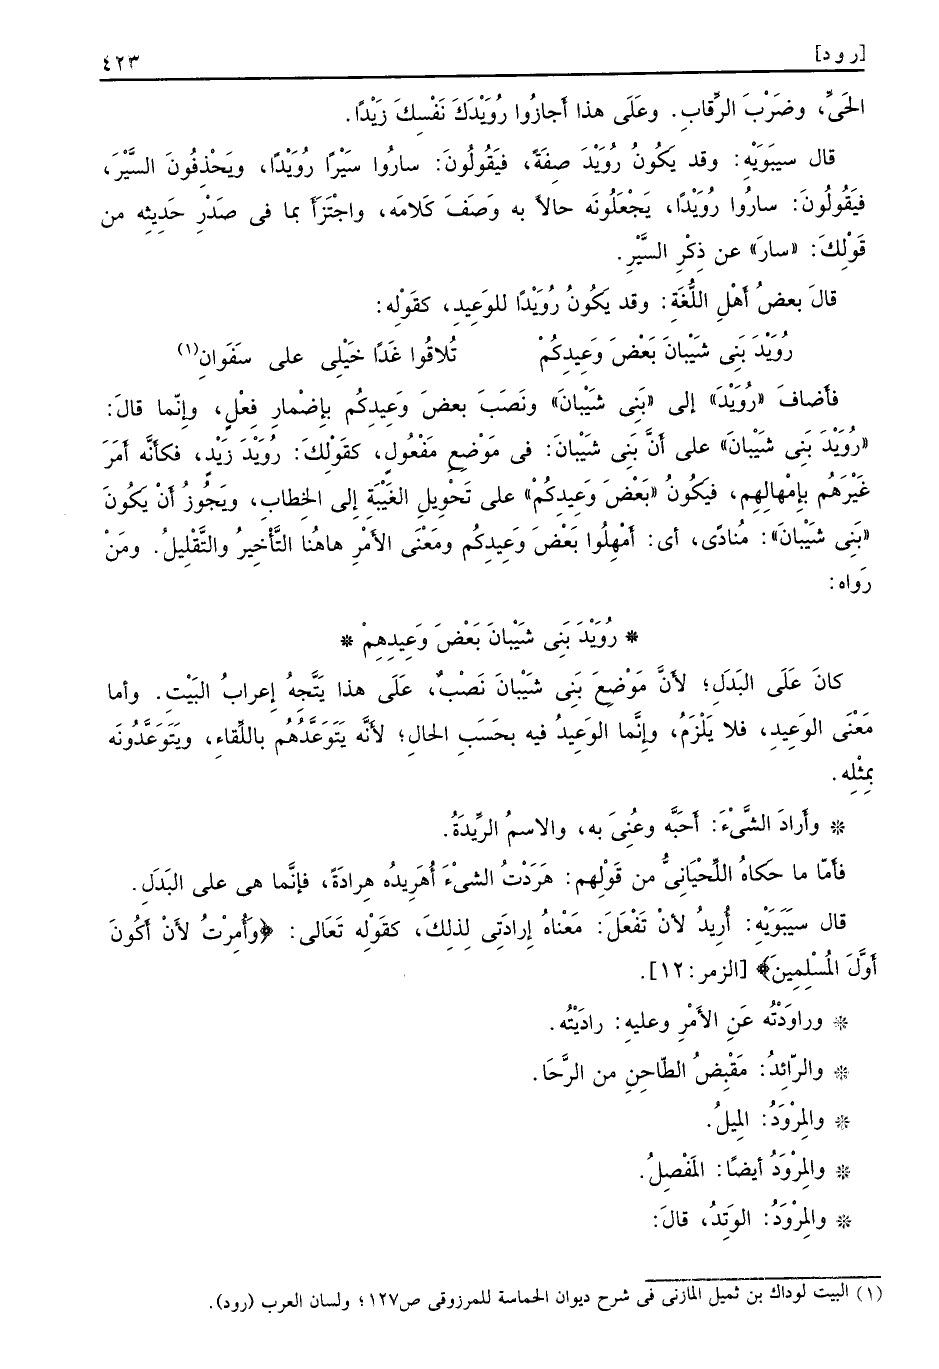 [ر و د] ٤٢٣
الحَىِّ، وضَرْبَ الرِّقابِ. وعَلَى هذا أجازُوا رُوَيْدَكَ نَفْسكَ زَيْدًا.
قال سيبَوَيْهِ: وقد يَكُونُ رُوَيْدَ صِفَةً، فيَقُولُونَ: سارُوا سَيْرًا رُوَيْدًا، ويَحْذِفُونَ السَّيْرَ،
فيَقُولُونَ: سارُوا رُوَيْدًا، يَجْعَلُونَه حالاً به وَصَفَ كَلامَه، واجْتَزَأ بما فى صَدْرِ حَديثِه من
قَوْلِكَ: «سارَ» عن ذِكْرِ السَّيْرِ.
قالَ بعضُ أهْلِ اللُّغَةِ: وقد يَكُونُ رُوَيْدًا للوَعِيد، كقَوْلِه:
رُوَيْدَ بَنِى شَيْبانَ بَعْضَ وَعِيدِكُمْ تُلاقُوا غَدًا خَيْلِى على سَفَوانِ(١)
فأضافَ «رُوَيْدَ» إلى «بَنِى شَيْبانَ» ونَصَبَ بعضَ وَعِيدِكُم بإضْمارِ فِعْلٍ، وإنَّما قالَ:
«رُوَيْدَ بَنِى شَيْبانَ» على أنَّ بَنِى شَيْبانَ: فى مَوْضِعِ مَفْعُولٍ، كقَوْلِكَ: رُوَيْدَ زَيْدٍ، فكأنَّه أمَرَ
غَيْرَهُم بإمْهالِهِم، فيَكُونُ «بَعْضَ وَعِيدِكُمْ» على تَحْوِيلِ الغَيْبَةِ إلى الخِطابِ، ويَجُوزُ أنْ يكونَ
«بَنِى شَيْبانَ»: مُنادًى، أى: أمْهِلُوا بَعْضَ وَعِيدِكُم ومَعْنَى الأمْرِ هاهُنا التَّأْخِيرُ والتَّقْلِيلُ. ومَنْ
رَواه:
* رُوَيْدَ بَنِى شَيْبانَ بَعْضَ وَعِيدِهِمْ *
كانَ عَلَى البَدَلِ؛ لأنَّ مَوْضِعَ بَنِى شَيْبانَ نَصْبٌ، عَلَى هذا يَتَّجِهُ إعرابُ البَيْتِ. وأما
مَعْنَى الوَعِيدِ، فلا يَلْزَمُ، وإنَّما الوَعِيدُ فيه بحَسَبِ الحالِ؛ لأنَّه يَتَوَعَّدُهُم باللِّقاءِ، ويتَوَعَّدُونَه
بمِثْلِه.
* وأرادَ الشَّىْءَ: أحَبَّه وعُنِىَ به، والاسمُ الرِّيدَةُ.
فأمّا ما حَكاهُ اللِّحْيانِىُّ من قَوْلِهم: هَرَدْتُ الشىْءَ أُهَرِيدُه هِرادَةً، فإنَّما هى على البَدَلِ.
قال سيَبَوَيْهِ: أُرِيدُ لأنْ تَفْعَلَ: مَعْناهُ إرادَتِى لِذلِكَ، كقَوْلِه تَعَالى: ﴿وأُمِرْتُ لأنْ أكُونَ
أوَّلَ المُسْلِمِينَ﴾ [الزمر: ١٢].
* وراوَدْتُه عَنِ الأمْرِ وعليهِ: رادَيْتُه.
* والرّائِدُ: مَقْبِضُ الطّاحِنِ من الرَّحَا.
* والمِرْوَدُ: المِيلُ.
* والمِرْوَدُ أيضًا: المَفْصِلُ.
* والمِرْوَدُ: الوَتِدُ، قالَ:
(١) البيت لوداك بن ثميل المازنى فى شرح ديوان الحماسة للمرزوقى ص١٢٧؛ ولسان العرب (رود).